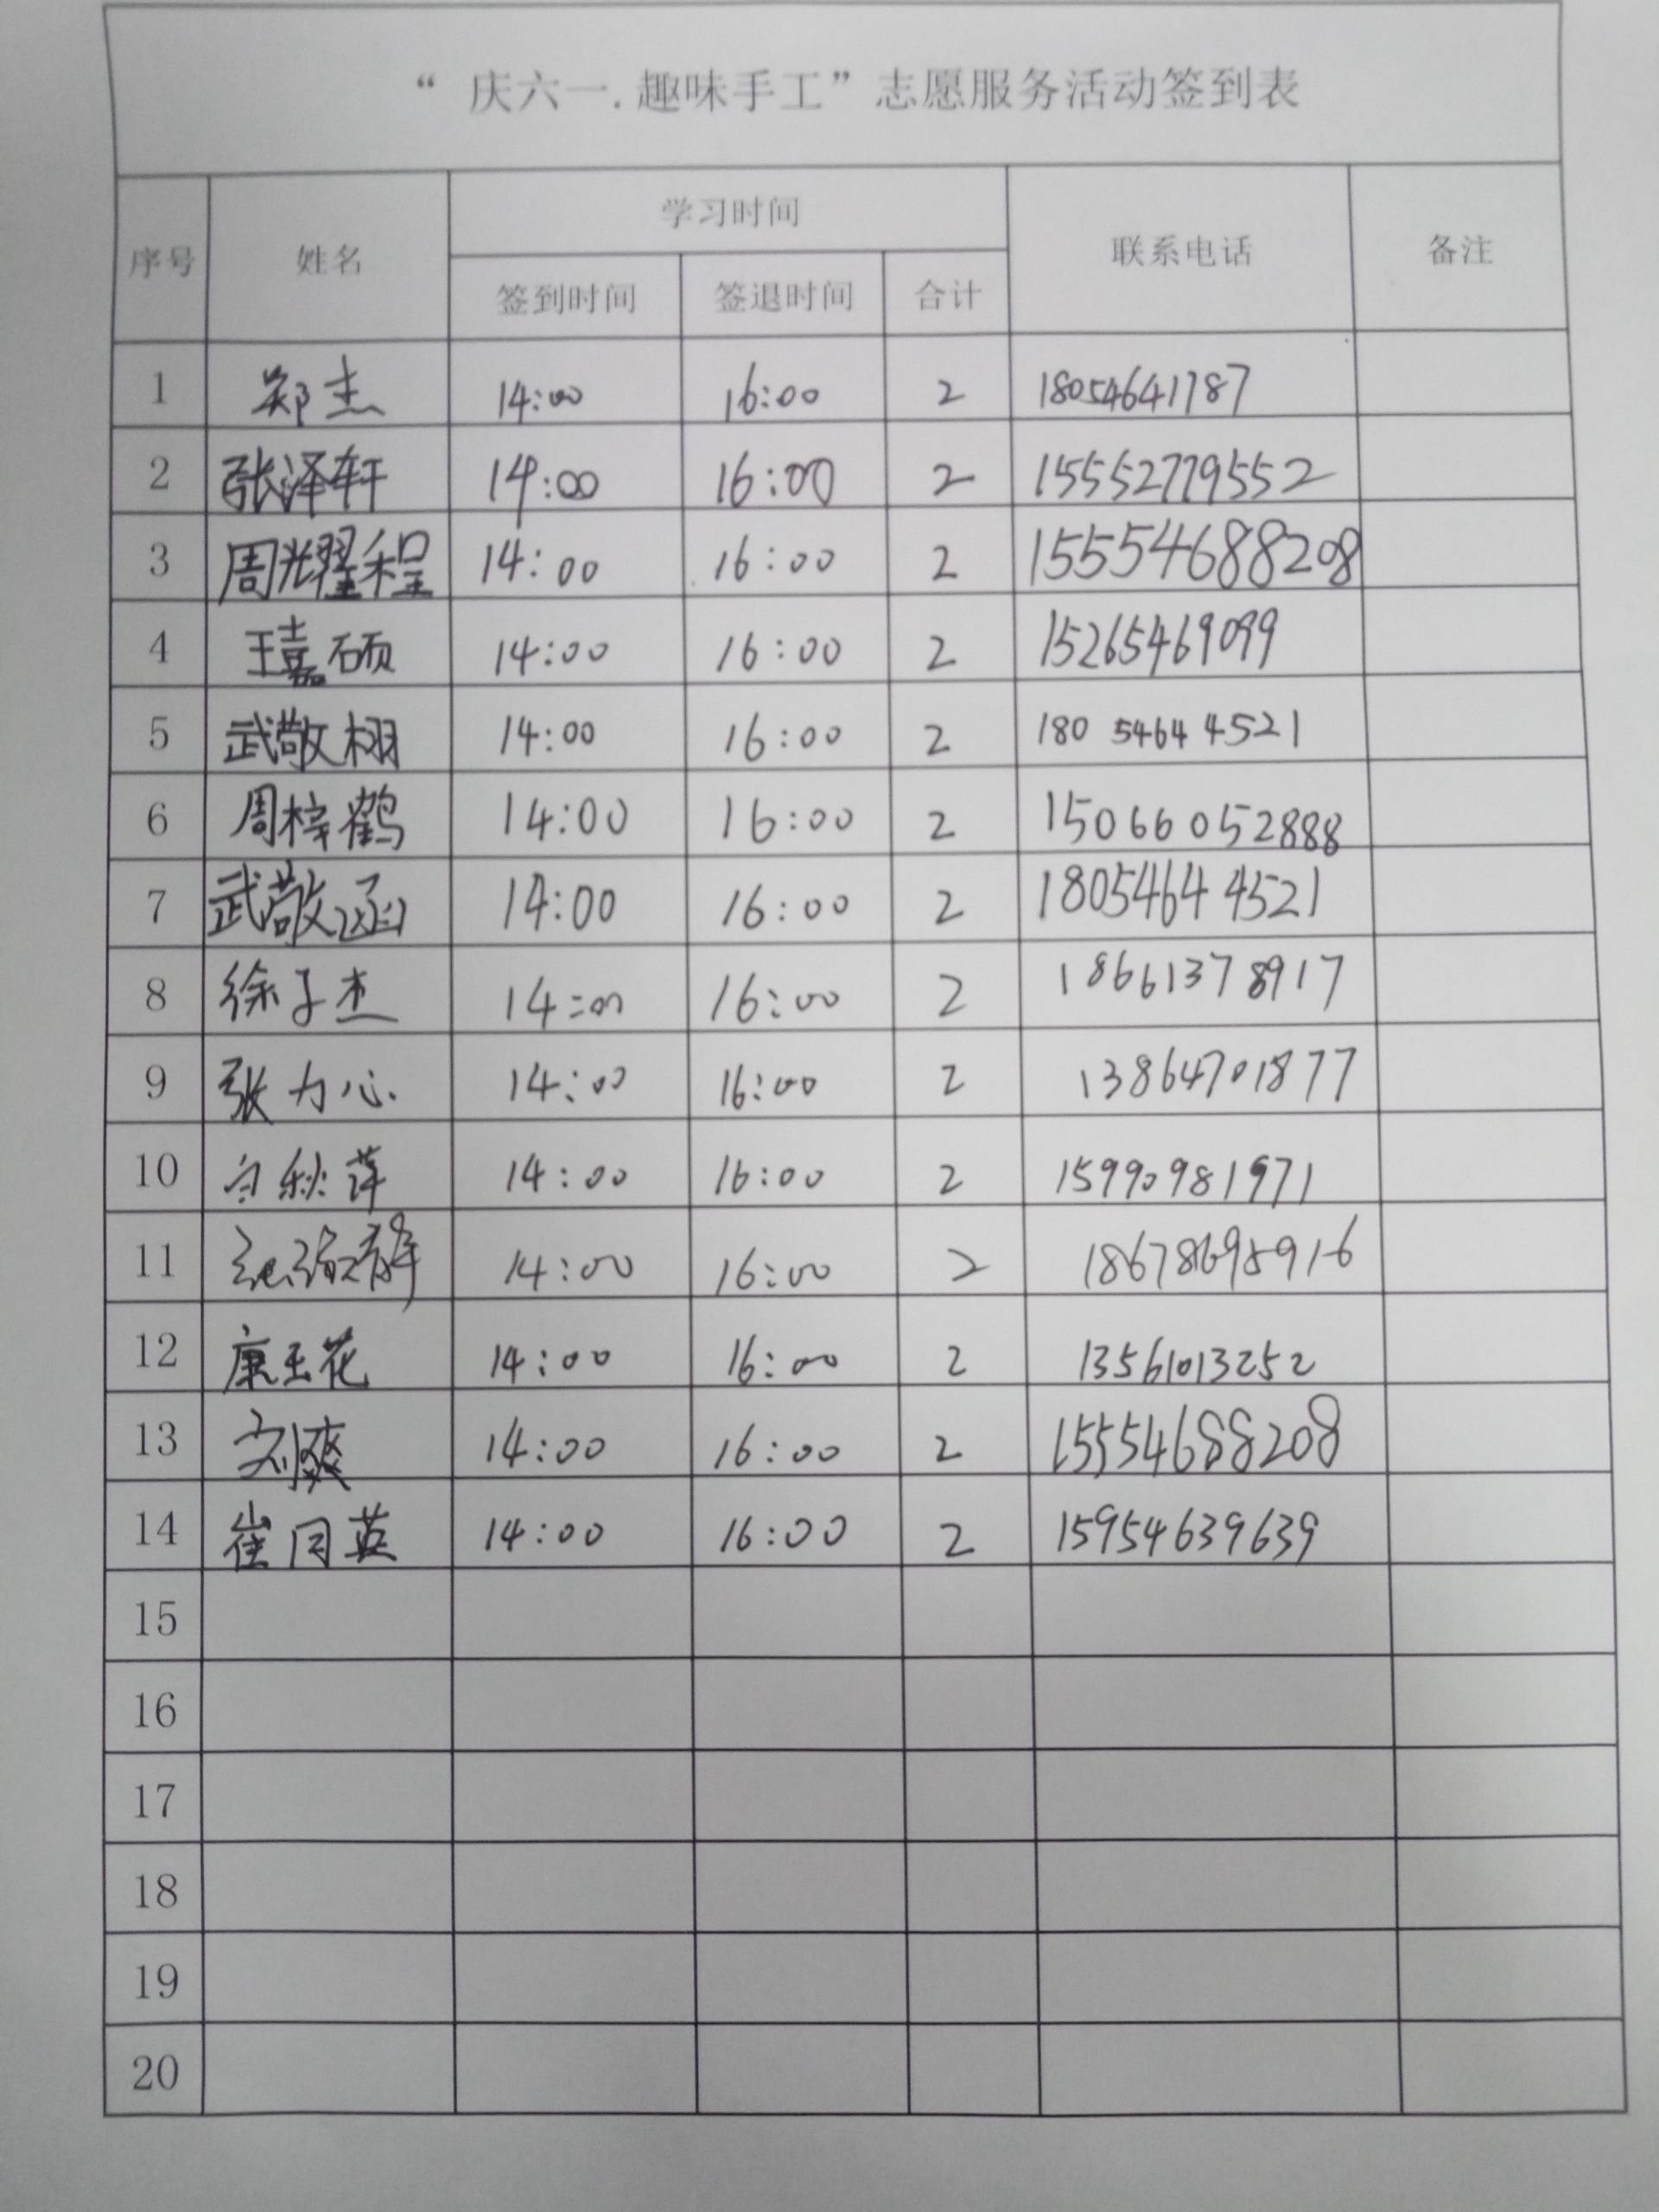 “ 庆六一.趣味手工”志愿服务活动签到表
序号 姓名 学习时间 联系电话 备注
签到时间 签退时间 合计
1 郑杰 14:00 16:00 2 18054641787
2 张泽轩 14:00 16:00 2 15552779552
3 周耀程 14:00 16:00 2 15554688208
4 王嘉硕 14:00 16:00 2 15265469099
5 武敬栩 14:00 16:00 2 180 5464 4521
6 周梓鹤 14:00 16:00 2 15066052888
7 武敬涵 14:00 16:00 2 18054644521
8 徐子杰 14:00 16:00 2 18661378917
9 张力心 14:00 16:00 2 13864701877
10 14:00 16:00 2 15990981971
11 14:00 16:00 2
12 康玉花 14:00 16:00 2 13561013252
13 刘爽 14:00 16:00 2 15554688208
14 崔同英 14:00 16:00 2 15954639639
15
16
17
18
19
20